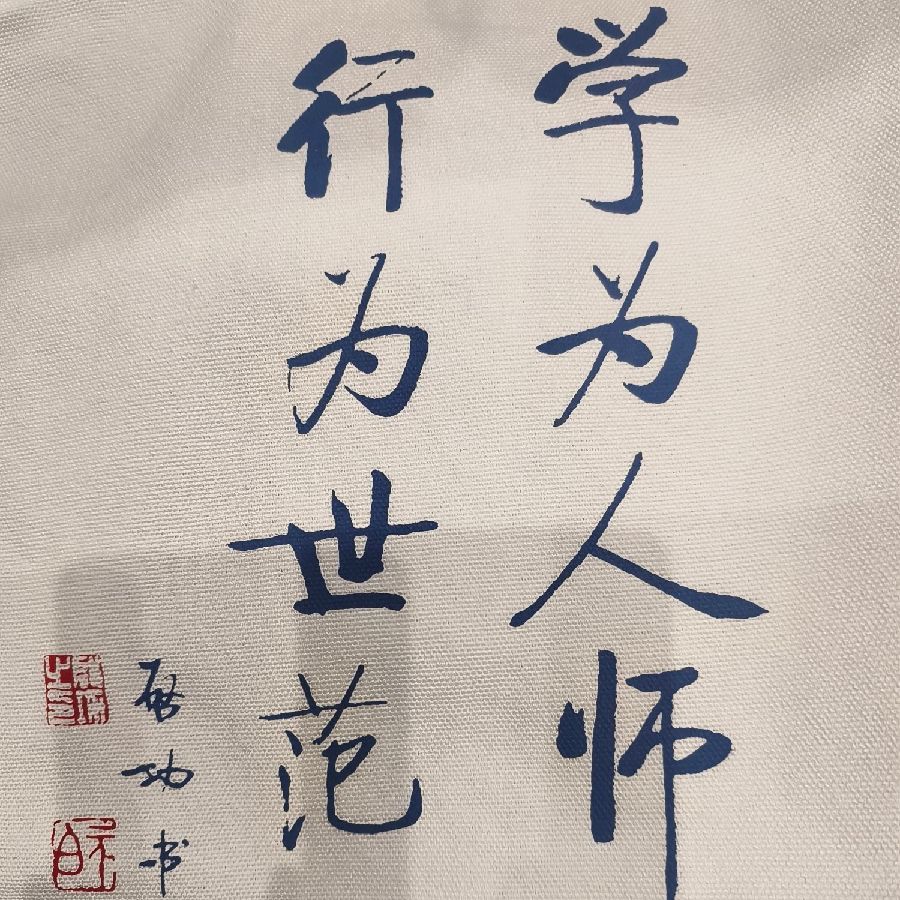 学为人师
行为世范
启功书